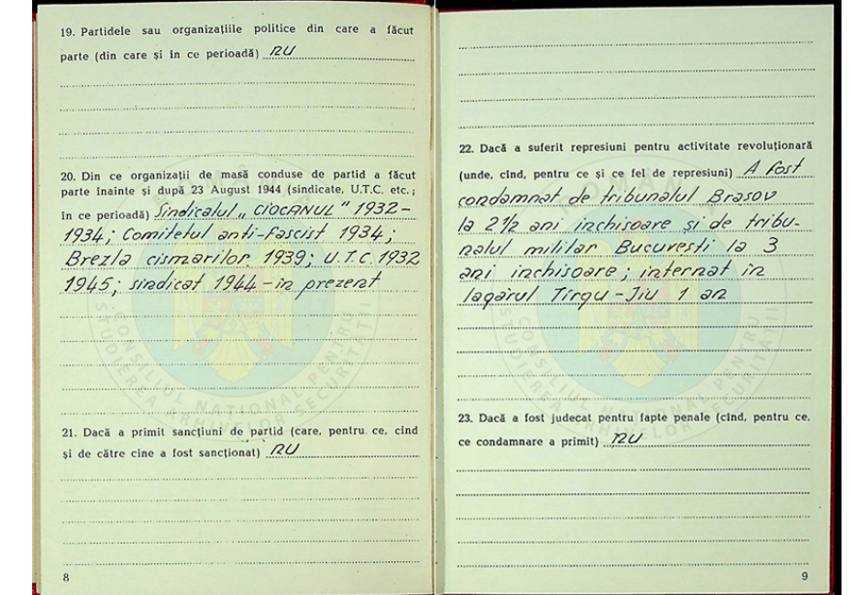 19. Partidele sau organizațiile politice din care a făcut
parte (din care și în ce perioadă) NU
20. Din ce organizații de masă conduse de partid a făcut
parte înainte și după 23 August 1944 (sindicate, U.T.C. etc.;
în ce perioadă) Sindicatul „CIOCANUL" 1932-
1934; Comitetul anti-fascist 1934;
Brezla cismarilor 1939; U.T.C. 1932
1945; sindicat 1944-în prezent
21. Dacă a primit sancțiuni de partid (care, pentru ce, cînd
și de către cine a fost sancționat) NU
8
22. Dacă a suferit represiuni pentru activitate revoluționară
(unde, cînd, pentru ce și ce fel de represiuni) A fost
condamnat de tribunalul Brașov
la 2 1/2 ani închisoare și de tribu-
nalul militar București la 3
ani închisoare; internat în
lagărul Tîrgu-Jiu 1 an
23. Dacă a fost judecat pentru fapte penale (cînd, pentru ce,
ce condamnare a primit) NU
9
CONSILIUL NAȚIONAL PENTRU
STUDIEREA ARHIVELOR SECURITĂȚII
CONSILIUL NAȚIONAL PENTRU
STUDIEREA ARHIVELOR SECURITĂȚII